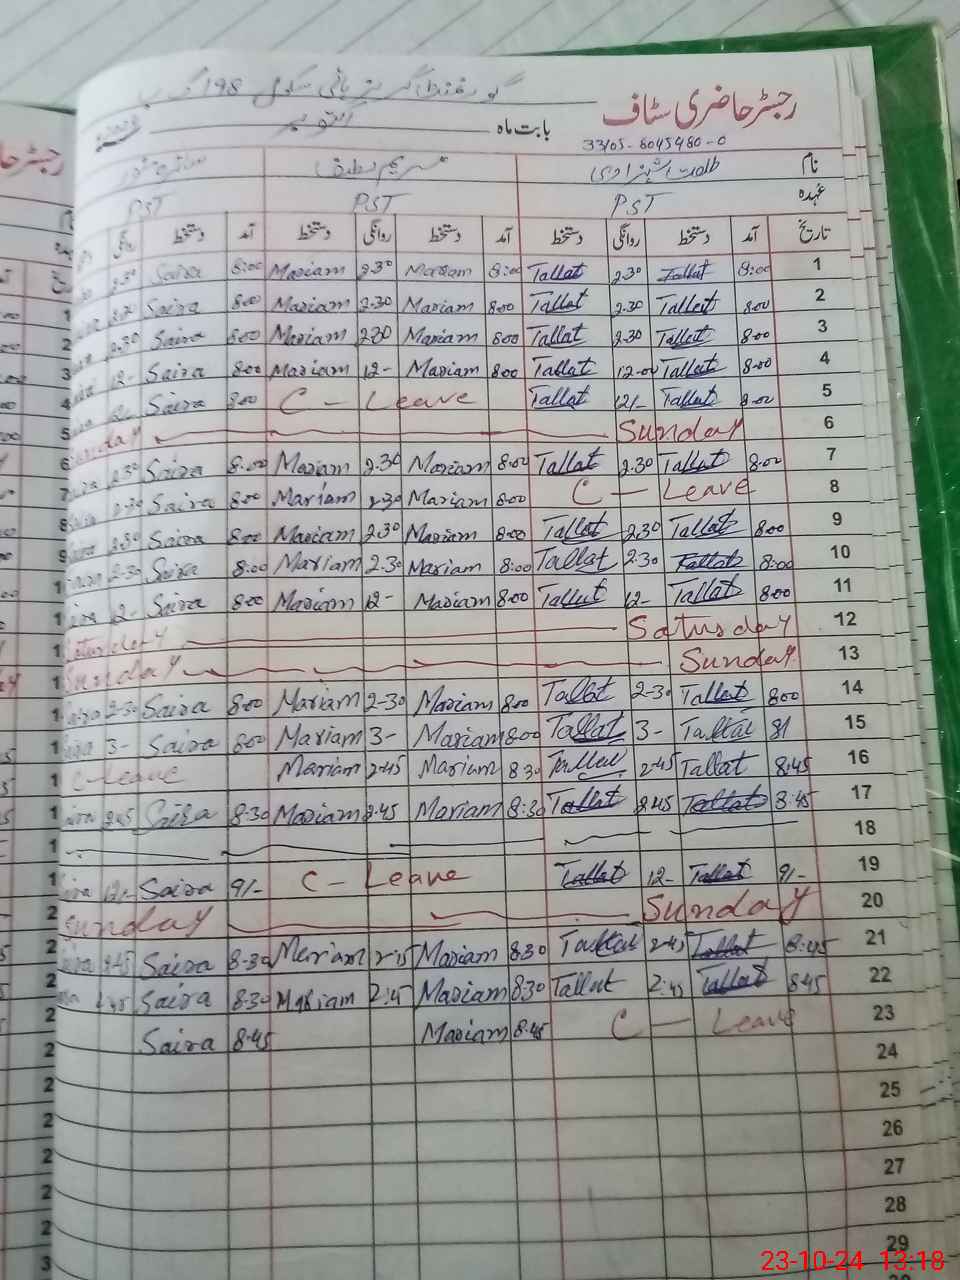 رجسٹر حاضری سٹاف
گورنمنٹ گرلز ہائی سکول 198
بابت ماہ اکتوبر
33105-8045480-0
نام طلعت شہزادی مریم
عہدہ PST PST PST
تاریخ آمد دستخط روانگی دستخط آمد دستخط روانگی دستخط آمد دستخط روانگی
1 8:00 Tallat 2.30 Tallat 8:00 Mariam 2.30 Mariam 8:00 Saira 2.30
2 8.00 Tallat 2.30 Tallat 8.00 Mariam 2.30 Mariam 8.00 Saira 2.30
3 8.00 Tallat 2.30 Tallat 8.00 Mariam 2.30 Mariam 8.00 Saira 2.30
4 8.00 Tallat 12.00 Tallat 8.00 Mariam 12- Mariam 8.00 Saira 12-
5 8.00 Tallat 12/- Tallat C - Leave 8.00 Saira
6 Sunday Sunday
7 8.00 Tallat 2.30 Tallat 8.00 Mariam 2.30 Mariam 8.00 Saira 2.30
8 C - Leave 8.00 Mariam 2.30 Mariam 8.00 Saira 2.30
9 8.00 Tallat 2.30 Tallat 8.00 Mariam 2.30 Mariam 8.00 Saira 2.30
10 8:00 Tallat 2.30 Tallat 8:00 Mariam 2.30 Mariam 8:00 Saira 2.30
11 8.00 Tallat 12- Tallat 8.00 Mariam 12- Mariam 8.00 Saira 12-
12 Saturday Saturday
13 Sunday Sunday
14 8.00 Tallat 2-30 Tallat 8.00 Mariam 2-30 Mariam 8.00 Saira 2-30
15 8/ Tallat 3- Tallat 8.00 Mariam 3- Mariam 8.00 Saira 3-
16 8.45 Tallat 2.45 Tallat 8.30 Mariam 2.45 Mariam C-Leave
17 8.45 Tallat 2.45 Tallat 8.30 Mariam 2.45 Mariam 8.30 Saira 2.45
18
19 9/- Tallat 12- Tallat C - Leave 9/- Saira 12/-
20 Sunday Sunday
21 8.45 Tallat 2.45 Tallat 8.30 Mariam 2.45 Mariam 8.30 Saira 2.45
22 8.45 Tallat 2.45 Tallat 8.30 Mariam 2.45 Mariam 8.30 Saira 2.45
23 C - Leave 8.45 Mariam 8.45 Saira
24
25
26
27
28
29
23-10-24 13:18